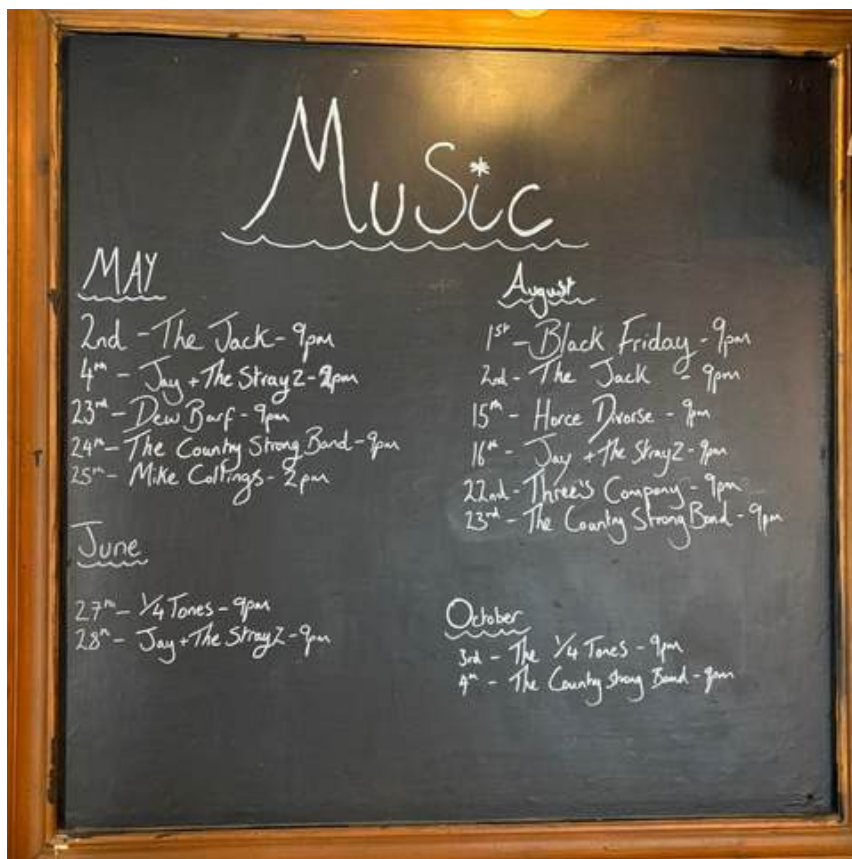 MuSic
MAY
2nd - The Jack - 9pm
4th - Jay + The Stray Z - 2pm
23rd - Dew Barf - 9pm
24th - The Country Strong Band - 9pm
25th - Mike Collings - 2pm
June
27th - 1/4 Tones - 9pm
28th - Jay + The Stray Z - 9pm
August
1st - Black Friday - 9pm
2nd - The Jack - 9pm
15th - Horce Divorse - 9pm
16th - Jay + The Stray Z - 9pm
22nd - Three's Company - 9pm
23rd - The Country Strong Band - 9pm
October
3rd - The 1/4 Tones - 9pm
4th - The Country Strong Band - 9pm